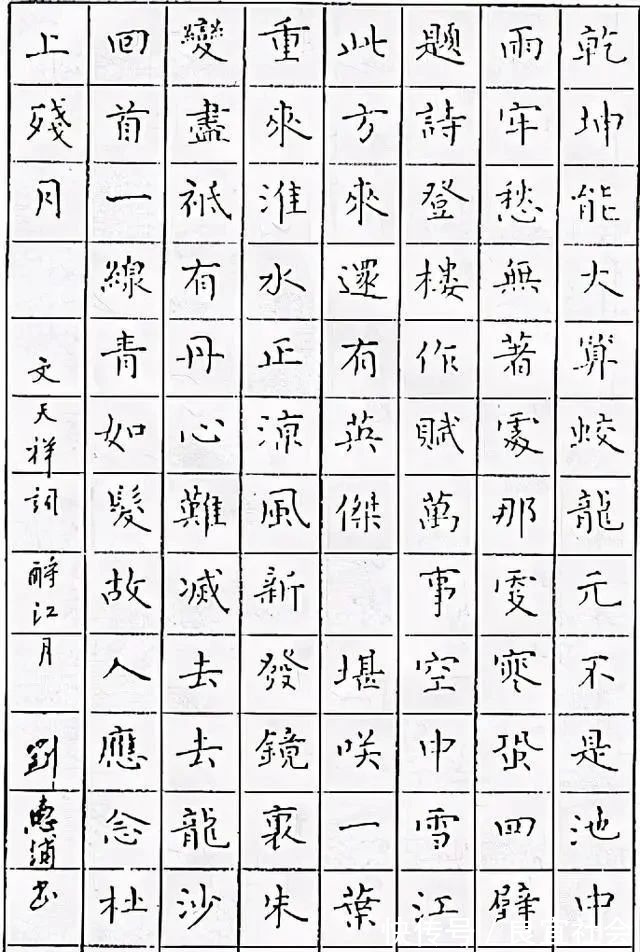 乾坤能大算蛟龍元不是池中
雨牢愁無著處那更寒蛩四壁
題詩登樓作賦萬事空中雪江
此方來還有英傑 堪咲一葉
重來淮水正涼風新發鏡裏朱
變盡祇有丹心難滅去去龍沙
回首一線青如髮故人應念杜
上殘月 文天祥詞 酹江月 劉惠浦書
快传号